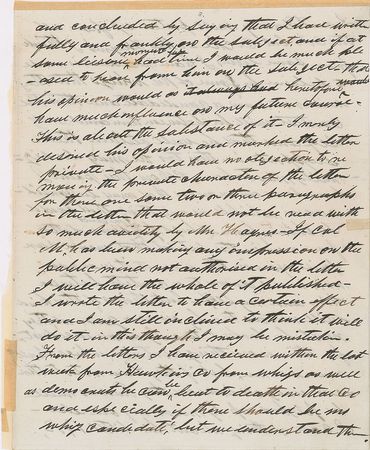 and concluded by saying that I have writ
fully and frankly on the subject and if at
some leisure moment he had time I would be much ple
ased to hear from him on the subject that
his opinion would as it always had heretofore would
have much influence on my future course -
This is about the substance of it I merely
desired his opinion and marked the letter
private - I would have no objection to re
moving the private character of the letter
for there are some two or three paragraphs
in the letter that would not be read with
so much avidity by Mr Haynes - If Col
M. has been making any impression on the
public mind not authorised in the letter
I will have the whole of it published -
I wrote the letter to have a certain effect
and I am still inclined to think it will
do it - in this though I may be mistaken.
From the letters I have received within the last
week from Hawkins Co from whigs as well
as democrats he can be beat to death in that Co
and especially if there should be no
whig candidate, but we understand the